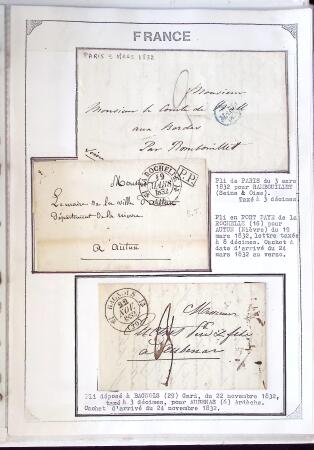 FRANCE
PARIS 3 MARS 1832
Monsieur
Monsieur le Comte de
aux Bordes
Par Rambouillet
Pli de PARIS du 3 mars
1832 pour RAMBOUILLET
(Seine & Oise).
Taxé à 3 décimes.
P.P.
LA ROCHELLE
19
MARS
1832
Le maire de la ville
Département de la
à Autun
Pli en PORT PAYE de la
ROCHELLE (16) pour
AUTUN (Nièvre) du 19
mars 1832, lettre taxée
à 8 décimes. Cachet à
date d'arrivé du 24
mars au verso.
BAGNOLS
22
NOV
1832
(29)
Monsieur
à Aubenas
Pli déposé à BAGNOLS (29) Gard, du 22 novembre 1832,
taxé à 3 décimes, pour AUBENAS (6) Ardèche.
Cachet d'arrivé du 24 novembre 1832.